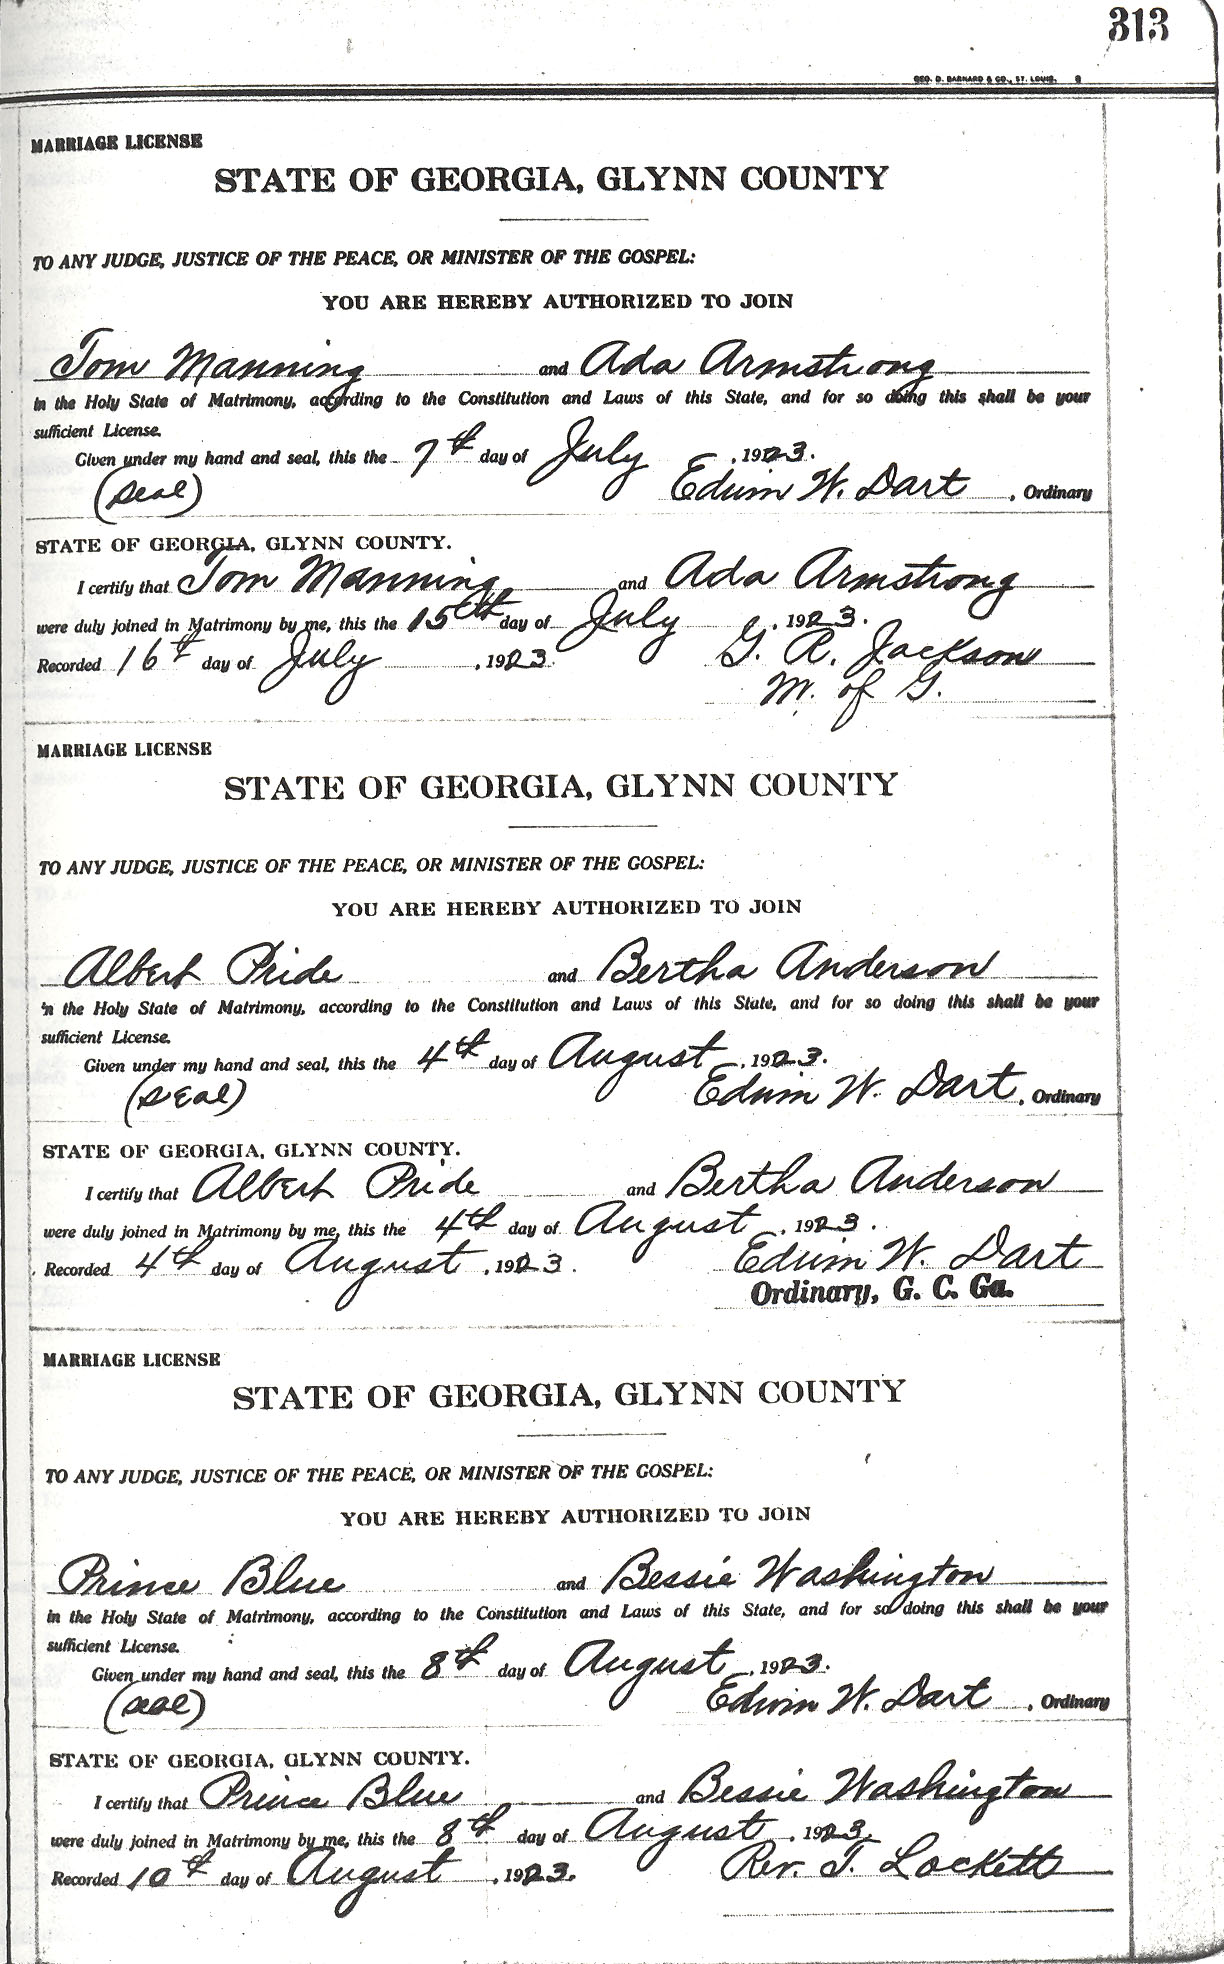 313
GEO. D. BARNARD & CO., ST. LOUIS.
MARRIAGE LICENSE
STATE OF GEORGIA, GLYNN COUNTY
TO ANY JUDGE, JUSTICE OF THE PEACE, OR MINISTER OF THE GOSPEL:
YOU ARE HEREBY AUTHORIZED TO JOIN
Tom Manning and Ada Armstrong
in the Holy State of Matrimony, according to the Constitution and Laws of this State, and for so doing this shall be your
sufficient License.
Given under my hand and seal, this the 7th day of July, 1923.
(Seal) Edwin W. Dart, Ordinary
STATE OF GEORGIA, GLYNN COUNTY.
I certify that Tom Manning and Ada Armstrong
were duly joined in Matrimony by me, this the 15th day of July, 1923.
Recorded 16th day of July, 1923. G. R. Jackson
M. of G.
MARRIAGE LICENSE
STATE OF GEORGIA, GLYNN COUNTY
TO ANY JUDGE, JUSTICE OF THE PEACE, OR MINISTER OF THE GOSPEL:
YOU ARE HEREBY AUTHORIZED TO JOIN
Albert Pride and Bertha Anderson
in the Holy State of Matrimony, according to the Constitution and Laws of this State, and for so doing this shall be your
sufficient License.
Given under my hand and seal, this the 4th day of August, 1923.
(Seal) Edwin W. Dart, Ordinary
STATE OF GEORGIA, GLYNN COUNTY.
I certify that Albert Pride and Bertha Anderson
were duly joined in Matrimony by me, this the 4th day of August, 1923.
Recorded 4th day of August, 1923. Edwin W. Dart
Ordinary, G. C. Ga.
MARRIAGE LICENSE
STATE OF GEORGIA, GLYNN COUNTY
TO ANY JUDGE, JUSTICE OF THE PEACE, OR MINISTER OF THE GOSPEL:
YOU ARE HEREBY AUTHORIZED TO JOIN
Prince Blue and Bessie Washington
in the Holy State of Matrimony, according to the Constitution and Laws of this State, and for so doing this shall be your
sufficient License.
Given under my hand and seal, this the 8th day of August, 1923.
(Seal) Edwin W. Dart, Ordinary
STATE OF GEORGIA, GLYNN COUNTY.
I certify that Prince Blue and Bessie Washington
were duly joined in Matrimony by me, this the 8th day of August, 1923.
Recorded 10th day of August, 1923. Rev. T. Lockett